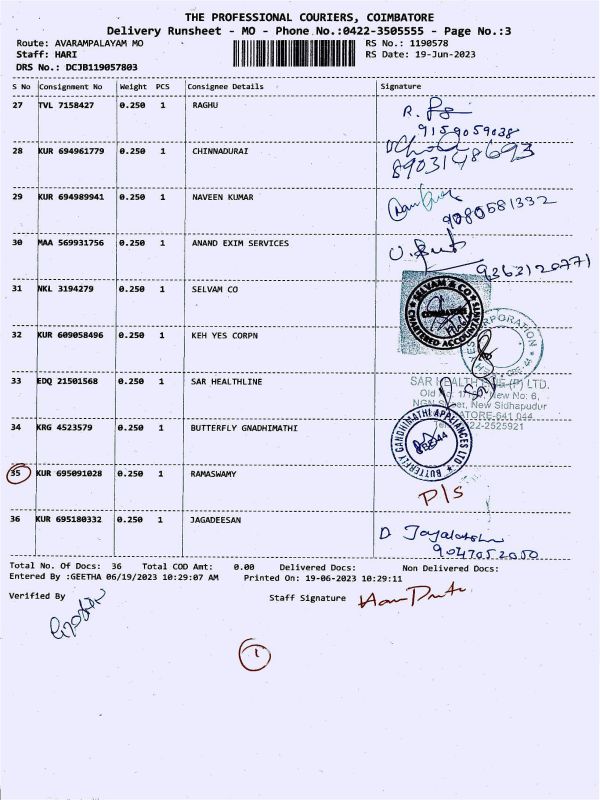 THE PROFESSIONAL COURIERS, COIMBATORE
Delivery Runsheet - MO - Phone No.:0422-3505555 - Page No.:3
Route: AVARAMPALAYAM MO RS No.: 1190578
Staff: HARI RS Date: 19-Jun-2023
DRS No.: DCJB119057803
S No Consignment No Weight PCS Consignee Details Signature
27 TVL 7158427 0.250 1 RAGHU
9159059038
28 KUR 694961779 0.250 1 CHINNADURAI
8903148693
29 KUR 694989941 0.250 1 NAVEEN KUMAR
9080581332
30 MAA 569931756 0.250 1 ANAND EXIM SERVICES
9363120771
31 NKL 3194279 0.250 1 SELVAM CO
SELVAM & CO
COIMBATORE
CHARTERED ACCOUNTANTS
32 KUR 609058496 0.250 1 KEH YES CORPN
33 EDQ 21501568 0.250 1 SAR HEALTHLINE
SAR HEALTHLINE (P) LTD.
New No: 6,
NGN Street, New Sidhapudur
COIMBATORE-641 044
34 KRG 4523579 0.250 1 BUTTERFLY GNADHIMATHI
BUTTERFLY GANDHIMATHI APPLIANCES LTD
35 KUR 695091028 0.250 1 RAMASWAMY
P/S
36 KUR 695180332 0.250 1 JAGADEESAN
D
9047052050
Total No. Of Docs: 36 Total COD Amt: 0.00 Delivered Docs: Non Delivered Docs:
Entered By :GEETHA 06/19/2023 10:29:07 AM Printed On: 19-06-2023 10:29:11
Verified By Staff Signature
1